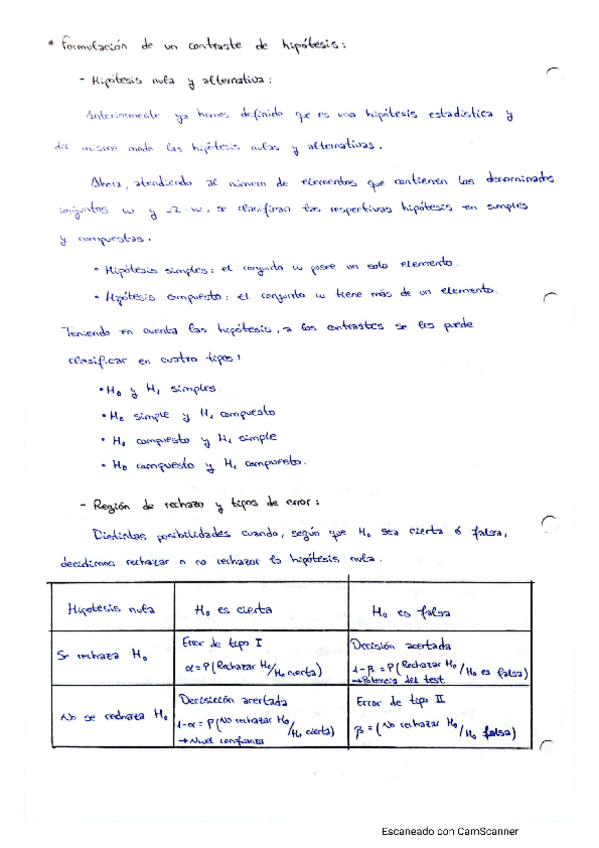 * Formulación de un contraste de hipótesis:
- Hipótesis nula y alternativa:
Anteriormente ya hemos definido que es una hipótesis estadística y
del mismo modo las hipótesis nulas y alternativas.
Ahora, atendiendo al número de elementos que contienen los denominados
conjuntos w y Ω-w, se clasifican las respectivas hipótesis en simples
y compuestas.
• Hipótesis simples: el conjunto w posee un solo elemento.
• Hipótesis compuesto: el conjunto w tiene más de un elemento.
Teniendo en cuenta las hipótesis, a los contrastes se les puede
clasificar en cuatro tipos:
• H₀ y H₁ simples.
• H₀ simple y H₁ compuesto
• H₀ compuesto y H₁ simple
• H₀ compuesto y H₁ compuesto.
- Región de rechazo y tipos de error:
Distintas posibilidades cuando, según que H₀ sea cierta ó falsa,
decidimos rechazar o no rechazar la hipótesis nula.
Hipotesis nula H₀ es cierta H₀ es falsa
Se rechaza H₀
Error de tipo I
α = P(Rechazar H₀/H₀ cierta)
Decisión acertada
1-β = P(Rechazar H₀/H₀ es falsa)
→Potencia del test
No se rechaza H₀
Decisición acertada
1-α = P(No rechazar H₀/H₀ cierta)
→ Nivel confianza
Error de tipo II
β = (No rechazar H₀/H₀ falsa)
Escaneado con CamScanner